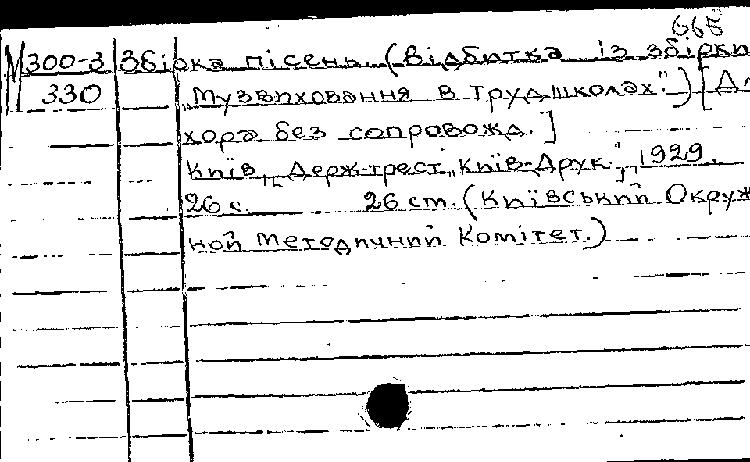 665
М 300-3 Збірка пісень. (Відбитка із збірки
330 „Музвиховання в трудшколах".) [Дл
хора без сопровожд.]
Київ, Держ-трест „Київ-Друк", 1929.
26 с. 26 ст. (Київський Окруж
ной Методичний Комітет.)